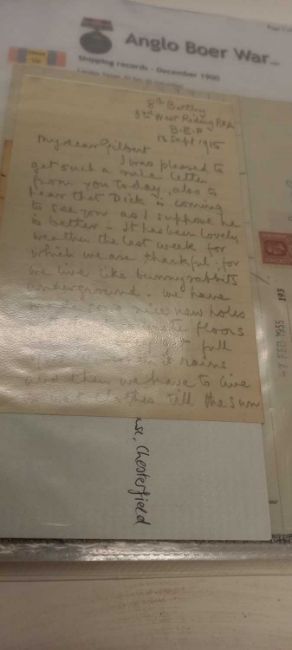 Anglo Boer War...
Shipping records - December 1900
8th Battery
3rd West Riding RFA
B.E.F
13 Sept 1915
My dear Gilbert
I was pleased to
get such a nice letter
from you today, also to
hear that Dick is coming
to see you as I suppose he
is better - It has been lovely
weather the last week for
which we are thankful, for
we live like bunny rabbits
underground. We have
nice new holes
floors
full
it rains
and then we have to live
clothes till the sun
Chesterfield
FEB 1955